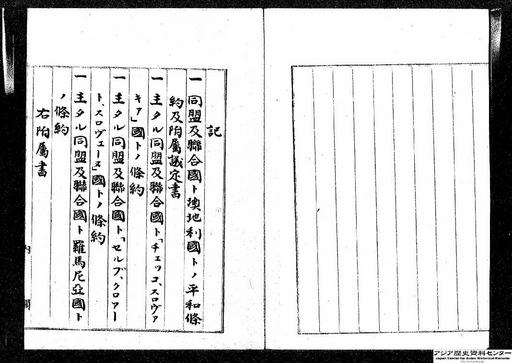 記
一 同盟及聯合國ト墺地利國トノ平和條
約及附屬議定書
一 主タル同盟及聯合國ト「チェッコ、スロヴァ
キア」國トノ條約
一 主タル同盟及聯合國ト「セルブ、クロアー
ト、スロヴェーヌ」國トノ條約
一 主タル同盟及聯合國ト羅馬尼亞國ト
ノ條約
右附屬書
内閣
アジア歴史資料センター
Japan Center for Asian Historical Records